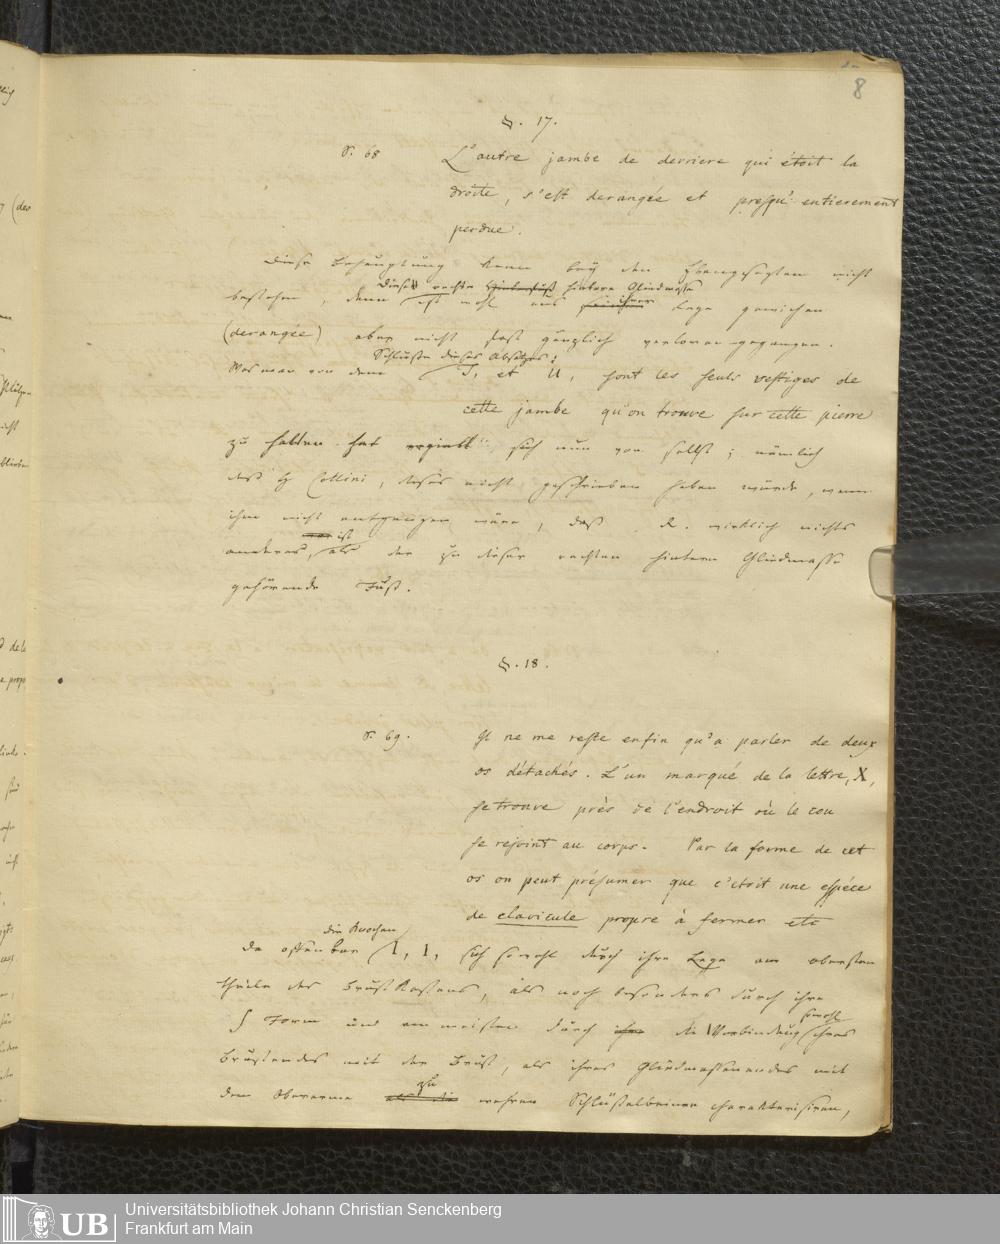 8
§. 17.
S. 68 L'autre jambe de derriere qui étoit la
droite, s'est derangée et presqu' entierement
perdue.
Diese Behauptung kann bey dem Ebengesagten nicht
diese rechte hintere Gliedmaße
bestehen, denn ist wohl aus ihrer Lage gewichen
(derangée) aber nicht fast gänzlich verloren gegangen.
Schluße dieses Absatzes:
Was man von dem T, et U, sont les seuls vestiges de
cette jambe qu'on trouve sur cette pierre
zu halten hat ergiebt sich nun von selbst; nämlich
daß H Collini, dieses nicht geschrieben haben würde, wenn
ihm nicht entgangen wäre, daß R. wirklich nichts
ist
anderes als der zu dieser rechten hintern Gliedmasse
gehörende Fuß.
§. 18.
S. 69. Il ne me reste enfin qu'a parler de deux
os détachés. L'un marqué de la lettre, X,
se trouve près de l'endroit où le cou
se rejoint au corps. Par la forme de cet
os on peut présumer que c'étoit une espéce
de clavicule propre à fermer etc
die Knochen
Da offenbar 1, 1, sich sowohl durch ihre Lage am obersten
Theile des Brust Kastens, als noch besonders durch ihre
sowohl
Form und am meisten durch die Verbindung ihres
Brustendes mit der Brust, als ihres Gliedmaßenendes mit
zu
dem Oberarme wahren Schlüßelbeinen charakterisiren,
Universitätsbibliothek Johann Christian Senckenberg
UB Frankfurt am Main